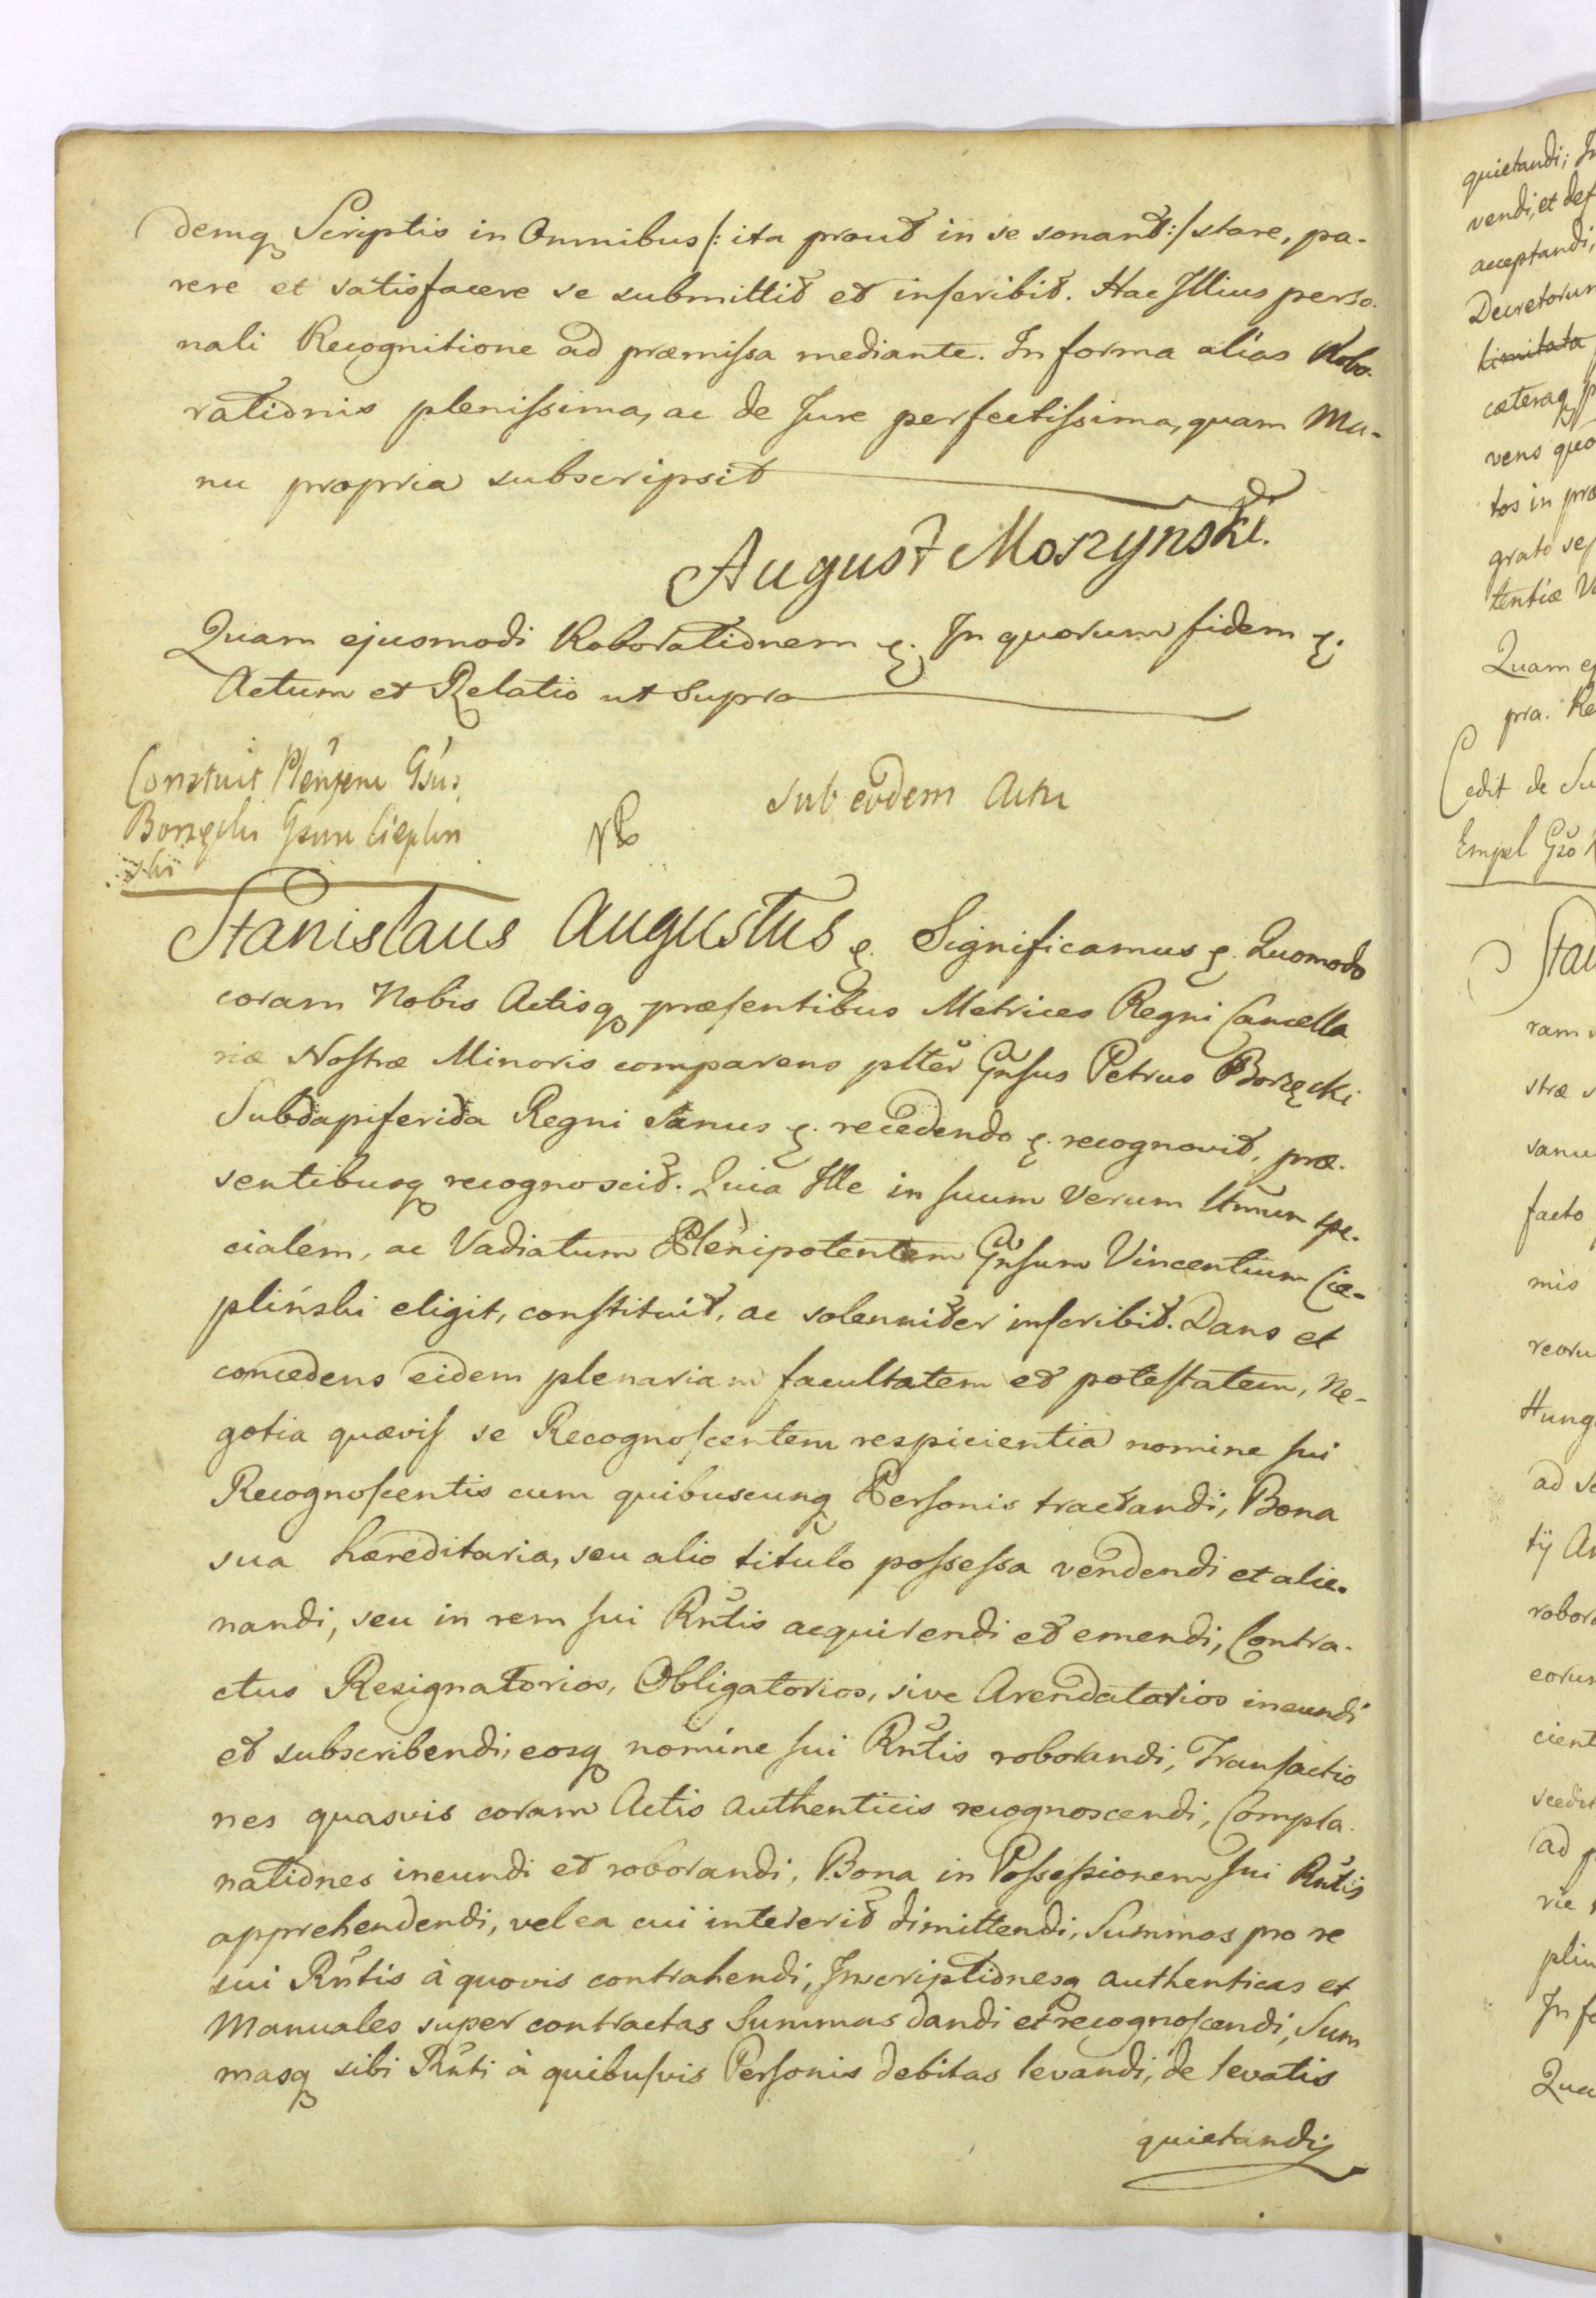 demq Scriptis in Omnibus /: ita prout in se sonant :/ stare, pa-
rere et satisfacere se submittit et inscribit. Hac Illius perso-
nali Recognitione ad præmissa mediante. In forma alias Robo-
rationis plenissima, ac de Jure perfectissima, quam Ma-
nu propria subscripsit
August Moszyński.
Quam ejusmodi Roborationem &. In quorum fidem &.
Actum et Relatio ut Supra
Constuit Plenṕem Gsus
Borzęcki Gsum Ciepliń
ski
sub eodem Actu
Stanislaus Augustus &. Significamus &. Quomodo
coram Nobis Actisq præsentibus Metrices Regni Cancella
riæ Nostræ Minoris comparens plter Gnsus Petrus Borzęcki
Subdapiferida Regni sanus &. recedendo &. recognovit, præ-
sentibusq recognoscit. Quia Ille in suum Verum Unum spe-
cialem, ac Vadiatum Plenipotentem Gnsum Vincentium Cie-
pliński eligit, constituit, ac solenniter inscribit. Dans et
concedens eidem plenariam facultatem et potestatem, Ne-
gotia quævis se Recognoscentem respicientia nomine sui
Recognoscentis cum quibuscunq Personis tractandi, Bona
sua hæreditaria, seu alio titulo possessa vendendi et alie-
nandi, seu in rem sui Rntis acquirendi et emendi, Contra-
ctus Resignatorios, Obligatorios, sive Arendatorios ineundi
et subscribendi, eosq nomine sui Rntis roborandi, Transactio
nes quasvis coram Actis authenticis recognoscendi, Compla-
nationes ineundi et roborandi, Bona in Possessionem sui Rntis
apprehendendi, vel ea cui intererit dimittendi, Summas pro re
sui Rntis à quovis contrahendi, Inscriptionesq authenticas et
Manuales super contractas Summas dandi et recognoscendi, Sum
masq sibi Rnti à quibusvis Personis debitas levandi, de levatis
quietandi
quietandi; In
vendi, et def
acceptandi,
Decretorum
limitata
cæteraq p
vens quo
tos in præ
grato se
tentiæ
Quam ej
pra. Re
Cedit de Su
Empel Gso
Stan
ram
stræ s
sanu
facto
mis
recru
Hung
ad
tij
robor
eorum
cient
scedit
ad p
rie
plin
In fo
Qua